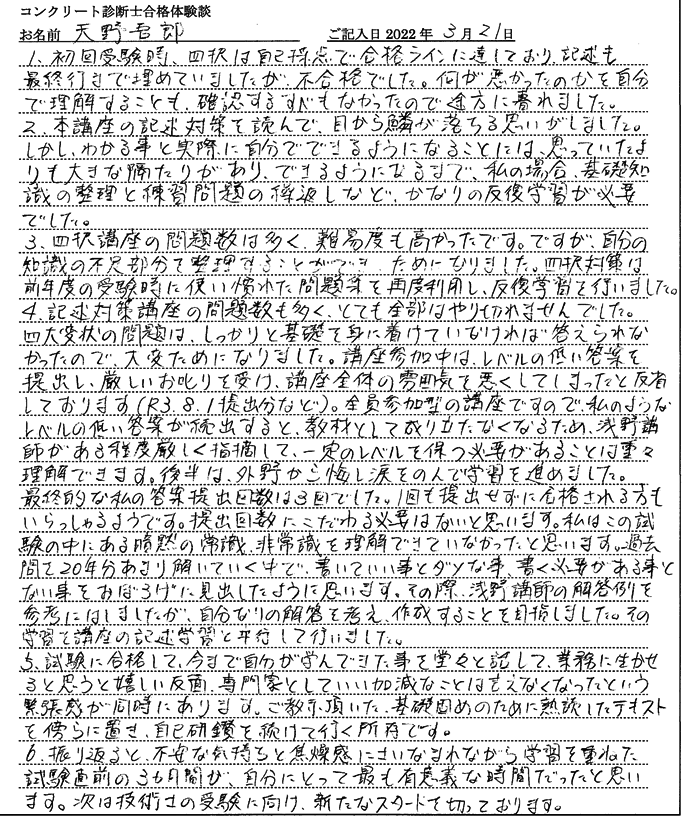 コンクリート診断士合格体験談
お名前 天野吾郎 ご記入日2022年 3月21日
1、初回受験時、四択は自己採点で合格ラインに達しており、記述も
最終行まで埋めていましたが、不合格でした。何が悪かったのかを自分
で理解することも、確認するすべもなかったので途方に暮れました。
2、本講座の記述対策を読んで、目から鱗が落ちる思いがしました。
しかし、わかる事と実際に自分でできるようになることには、思っていたよ
りも大きな隔たりがあり、できるようになるまで、私の場合、基礎知
識の整理と練習問題の繰返しなど、かなりの反復学習が必要
でした。
3、四択講座の問題数は多く、難易度も高かったです。ですが、自分の
知識の不足部分を整理することができ、ためになりました。四択対策は
前年度の受験時に使い慣れた問題集を再度利用し、反復学習を行いました。
4、記述対策講座の問題数も多く、とても全部はやり切れませんでした。
四大変状の問題は、しっかりと基礎を身に着けていなければ答えられな
かったので、大変ためになりました。講座参加中は、レベルの低い答案を
提出し、厳しいお叱りを受け、講座全体の雰囲気を悪くしてしまったと反省
しております(R3.8.1提出分など)。全員参加型の講座ですので、私のような
レベルの低い答案が続出すると、教材として成り立たなくなるため、浅野講
師がある程度厳しく指摘して、一定のレベルを保つ必要があることは重々
理解できます。後半は、外野から悔し涙をのんで学習を進めました。
最終的な私の答案提出回数は3回でした。1回も提出せずに合格される方も
いらっしゃるようです。提出回数にこだわる必要はないと思います。私はこの試
験の中にある暗黙の常識、非常識を理解できていなかったと思います。過去
問を20年分あまり解いていく中で、書いていい事とダメな事、書く必要がある事と
ない事をおぼろげに見出したように思います。その際、浅野講師の解答例を
参考にはしましたが、自分なりの解答を考え、作成することを目指しました。その
学習を講座の記述学習と平行して行いました。
5、試験に合格して、今まで自分が学んできた事を堂々と記して、業務に生かせ
ると思うと嬉しい反面、専門家としていい加減なことは言えなくなったという
緊張感が同時にあります。ご教示頂いた、基礎固めのために熟読したテキスト
を傍らに置き、自己研鑽を続けて行く所存です。
6、振り返ると、不安な気持ちと焦燥感にさいなまれながら学習を重ねた
試験直前の3カ月間が、自分にとって最も有意義な時間だったと思い
ます。次は技術士の受験に向け、新たなスタートを切っております。